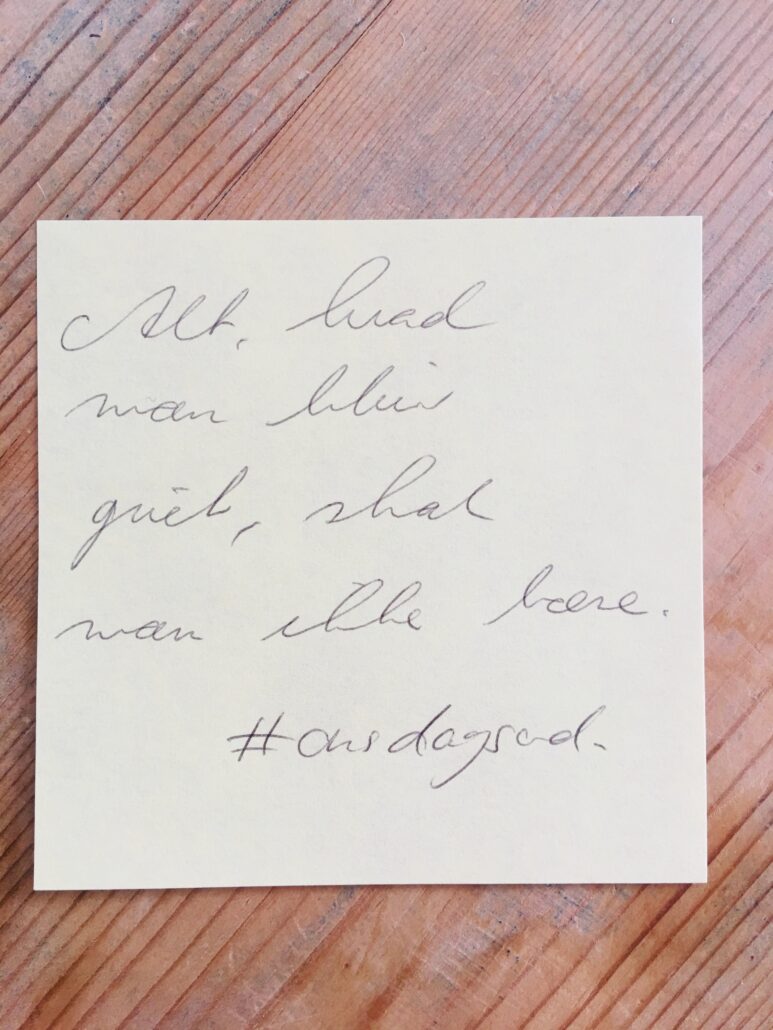 Alt, hvad
man bliv
givet, skal
man ikke bære.
#onsdagsord.